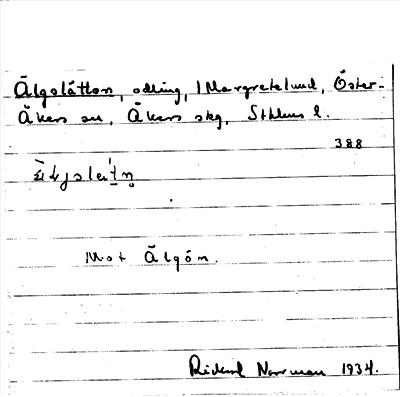 Älgslåtten, odling, 1 Margretelund, Öster-
Åkers sn, Åkers skg, Sthlms l.
388
Mot Älgön.
Rickard Norrman 1934.